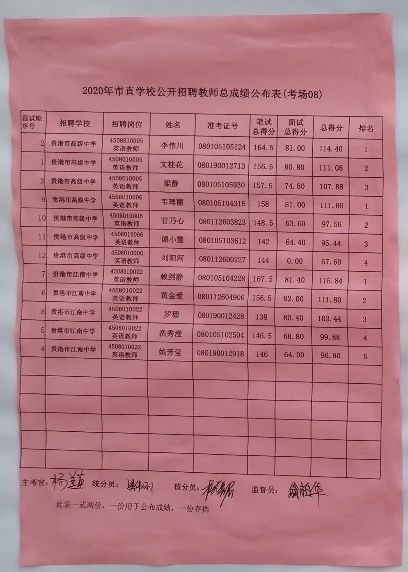 2020年市直学校公开招聘教师总成绩公布表(考场08)
面试顺序号 招聘学校 招聘岗位 姓名 准考证号 笔试总得分 面试总得分 总得分 排名
2 贵港市高级中学 4508010005英语教师 李伟川 080105105124 164.5 81.00 114.40 1
1 贵港市高级中学 4508010005英语教师 文桂花 080190012713 156.5 80.80 111.08 2
3 贵港市高级中学 4508010005英语教师 梁静 080105105930 157.5 74.80 107.88 3
9 贵港市高级中学 4508010006英语教师 韦理丽 080105104316 158 81.00 111.80 1
10 贵港市高级中学 4508010006英语教师 甘乃心 080112603823 148.5 63.60 97.56 2
11 贵港市高级中学 4508010006英语教师 谭小慧 080105103612 142 64.40 95.44 3
12 贵港市高级中学 4508010006英语教师 刘阳河 080112600227 144 0.00 57.60 4
7 贵港市江南中学 4508010022英语教师 赖剑静 080105104228 167.5 81.40 115.84 1
6 贵港市江南中学 4508010022英语教师 黄金爱 080112604906 156.5 82.00 111.80 2
8 贵港市江南中学 4508010022英语教师 罗瑶 080190012428 138 80.40 103.44 3
5 贵港市江南中学 4508010022英语教师 冼秀澄 080105102504 146.5 68.80 99.88 4
4 贵港市江南中学 4508010022英语教师 姚秀莹 080190012918 146 64.00 96.80 5
主考官: 统分员: 核分员: 监督员:
此表一式两份，一份用于公布成绩，一份存档